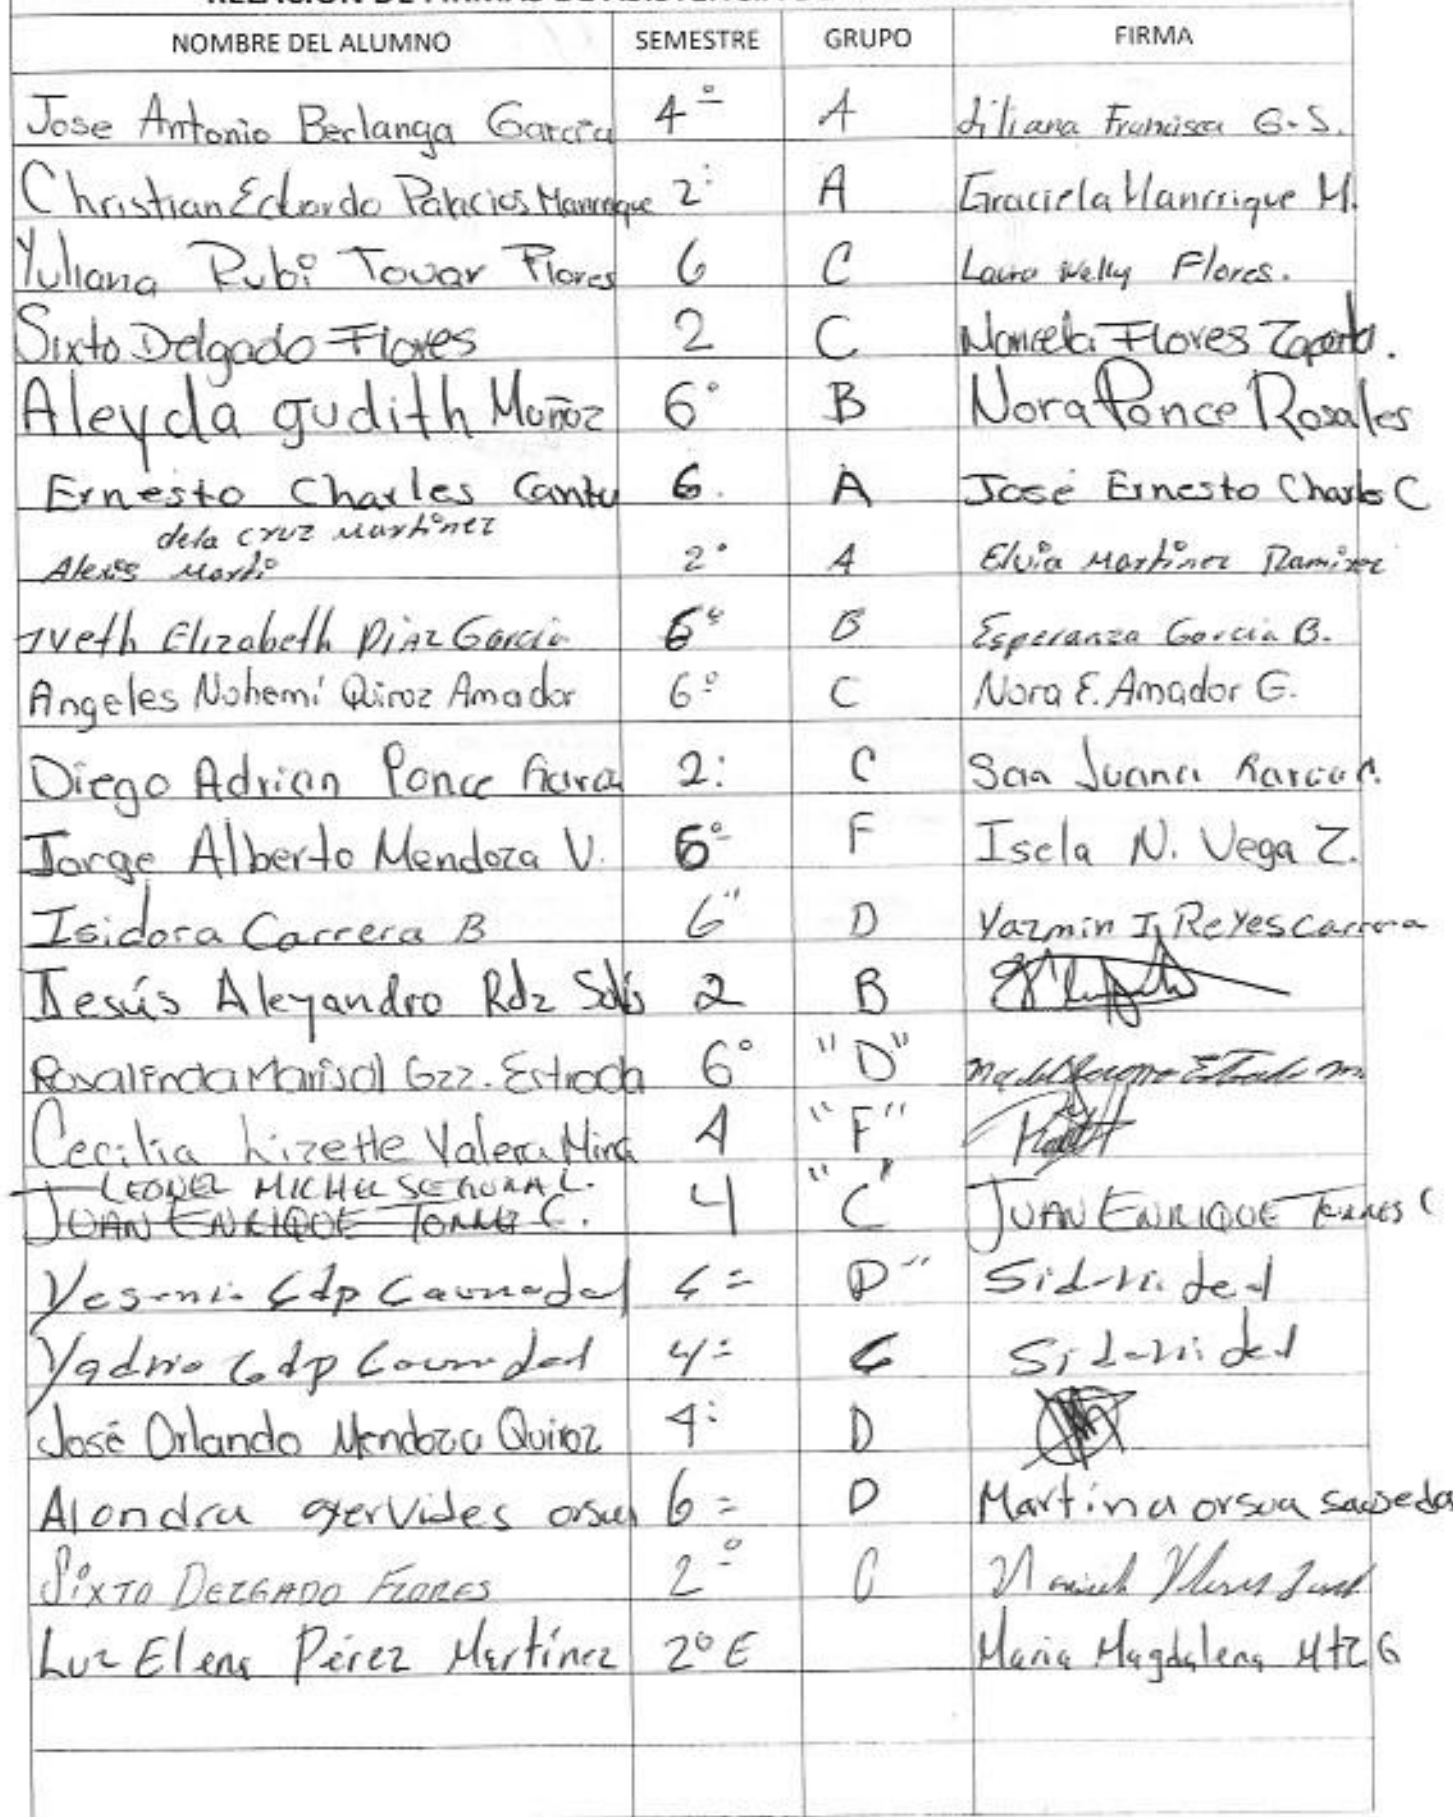 NOMBRE DEL ALUMNO SEMESTRE GRUPO FIRMA
Jose Antonio Berlanga García 4º A Liliana Francisca G. S.
Christian Eduardo Palacios Manrrique 2 A Graciela Manrrique M.
Yuliana Rubi Tovar Flores 6 C Laura Nelly Flores.
Sixto Delgado Flores 2 C Marcela Flores Zapata.
Aleyda gudith Muñoz 6° B Nora Ponce Rosales
Ernesto Charles Cantu 6. A José Ernesto Charles C
dela cruz Martinez
Alexis Marti 2° A Elvia Martinez Ramirez
Iveth Elizabeth Diaz Garcia 6° B Esperanza Garcia B.
Angeles Nohemí Quiroz Amador 6º C Nora E. Amador G.
Diego Adrian Ponce 2: C San Juana
Jorge Alberto Mendoza V. 6º F Isela N. Vega Z.
Isidora Carrera B 6" D Yazmin I. Reyes Carrera
Jesús Aleyandro Rdz Solís 2 B
Rosalinda Marisol Gzz. Estrada 6° "D" Estrada m.
Cecilia Lizette Valera Mina 4 "F"
LEONEL MICHEL SEGURA L.
JUAN ENRIQUE TORRES C. 4 "C" JUAN ENRIQUE TORRES C
Yesenia D"
4=
José Orlando Mendoza Quiroz 4: D
Alondra orsua 6= D Martina orsua sauseda
SIXTO DELGADO FLORES 2º C
Luz Elena Pérez Martínez 2º E Maria Magdalena Mtz G